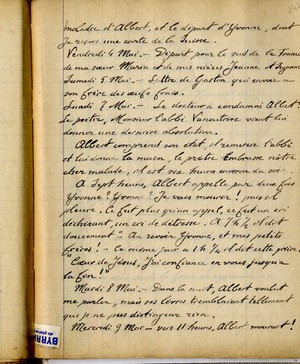 maladie d'Albert, et le départ d'Yvonne, dont
je reçois une carte de la Suisse.
Vendredi 4 Mai. - Départ pour le sud de la France
de ma sœur Maria et de mes nièces Jeanne et Suzanne
Samedi 5 Mai. - Lettre de Gaston qui envoie à
son frère des œufs frais.
Lundi 7 Mai. - Le docteur a condamné Albert!
Le prêtre, Monsieur l'abbé vient lui
donner une dernière absolution.
Albert comprend son état, et remercie l'abbé
et lui donne la main, le prêtre embrasse notre
cher malade, il est six heures environ du soir.
A sept heures, Albert appelle par deux fois
Yvonne? Yvonne? Je vais mourir! puis il
pleure. Ce fut plus qu'un appel, ce fut un cri
déchirant, un cri de détresse. A 7h ½ il dit
doucement "Au revoir Yvonne, et mes petits
frères!" - Le même jour à 1h ½ il dit cette prière
"Cœur de Jésus, j'ai confiance en vous jusqu'à
la fin!"
Mardi 8 Mai. - Dans la nuit, Albert voulut
me parler, mais ses lèvres tremblaient tellement
que je ne pus distinguer rien.
Mercredi 9 Mai - vers 11 heures, Albert mourait!
BYRRH